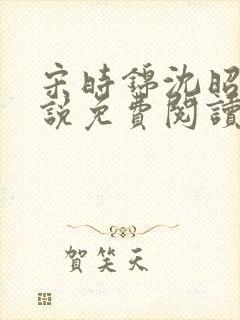 宋時錦沈昭
說免費閱讀
賀笑天